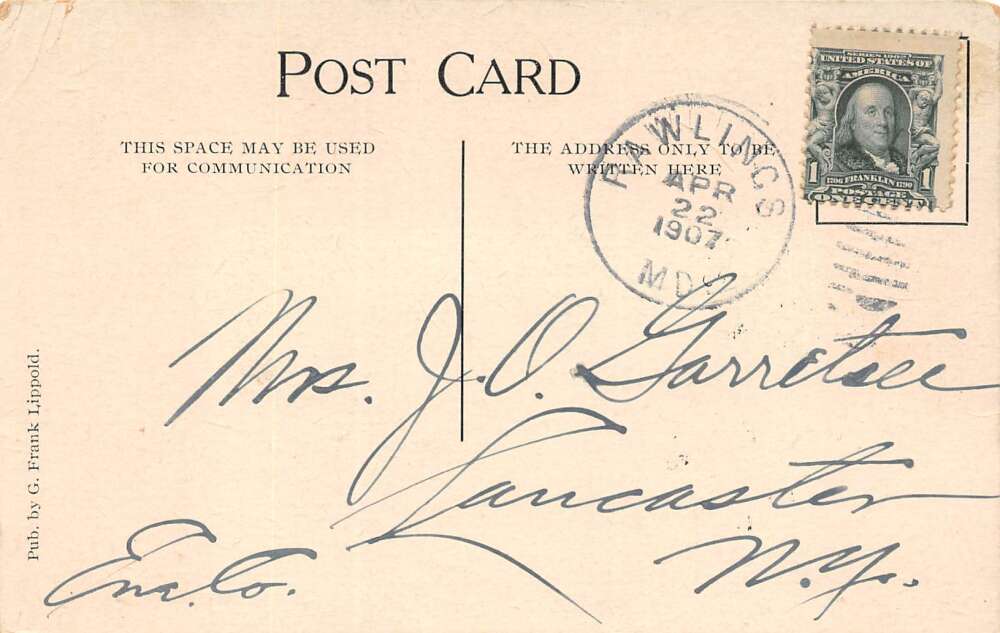 POST CARD
THIS SPACE MAY BE USED
FOR COMMUNICATION
THE ADDRESS ONLY TO BE
WRITTEN HERE
RAWLINGS
APR
22
1907
MD.
SERIES 1902
UNITED STATES OF
AMERICA
1 FRANKLIN 1
1706 1790
POSTAGE
ONE CENT
Mrs. J. O. Garretsee
Lancaster
N.Y.
Erie Co.
Pub. by G. Frank Lippold.